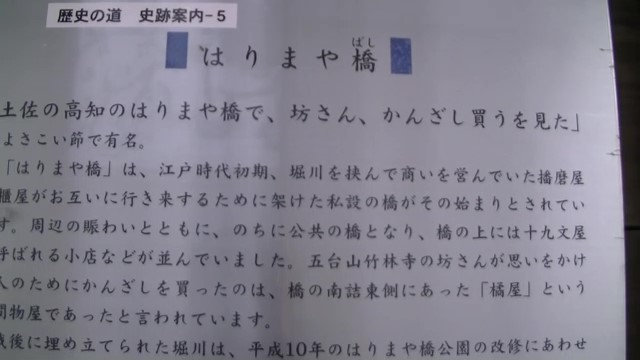 歴史の道 史跡案内-5
はりまや橋
ばし
土佐の高知のはりまや橋で、坊さん、かんざし買うを見た」
よさこい節で有名。
「はりまや橋」は、江戸時代初期、堀川を挟んで商いを営んでいた播磨屋
櫃屋がお互いに行き来するために架けた私設の橋がその始まりとされてい
す。周辺の賑わいとともに、のちに公共の橋となり、橋の上には十九文屋
呼ばれる小店などが並んでいました。五台山竹林寺の坊さんが思いをかけ
人のためにかんざしを買ったのは、橋の南詰東側にあった「橘屋」という
間物屋であったと言われています。
戦後に埋め立てられた堀川は、平成10年のはりまや橋公園の改修にあわせ